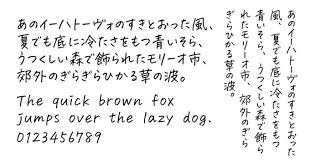 あのイーハトーヴォのすきとおった風、
夏でも底に冷たさをもつ青いそら、
うつくしい森で飾られたモリーオ市、
郊外のぎらぎらひかる草の波。
The quick brown fox
jumps over the lazy dog.
0123456789
あのイーハトーヴォのすきとおった
風、夏でも底に冷たさをもつ
青いそら、うつくしい森で飾ら
れたモリーオ市、郊外のぎら
ぎらひかる草の波。